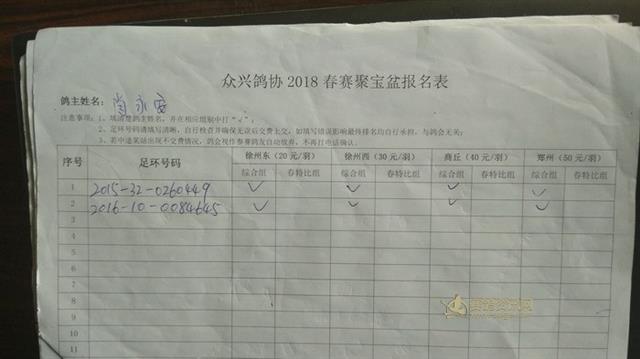 众兴鸽协 2018 春赛聚宝盆报名表
鸽主姓名：肖永安
注意事项：1、填清楚鸽主姓名，并在相应组别中打“√”；
2、足环号码请填写清晰，自行检查并确保无误后交费上交，如填写错误影响最终排名均自行承担，与鸽会无关；
3、若中途奖站出现不交费情况，鸽会视作参赛鸽友自动放弃，不再打电话确认。
序号 足环号码 徐州东（20 元/羽） 徐州西（30 元/羽） 商丘（40 元/羽） 郑州（50 元/羽）
综合组 春特比组 综合组 春特比组 综合组 春特比组 综合组 春特比组
1 2015-32-0260449 √ √ √ √
2 2016-10-0084645 √ √ √ √
3
4
5
6
7
8
9
10
11